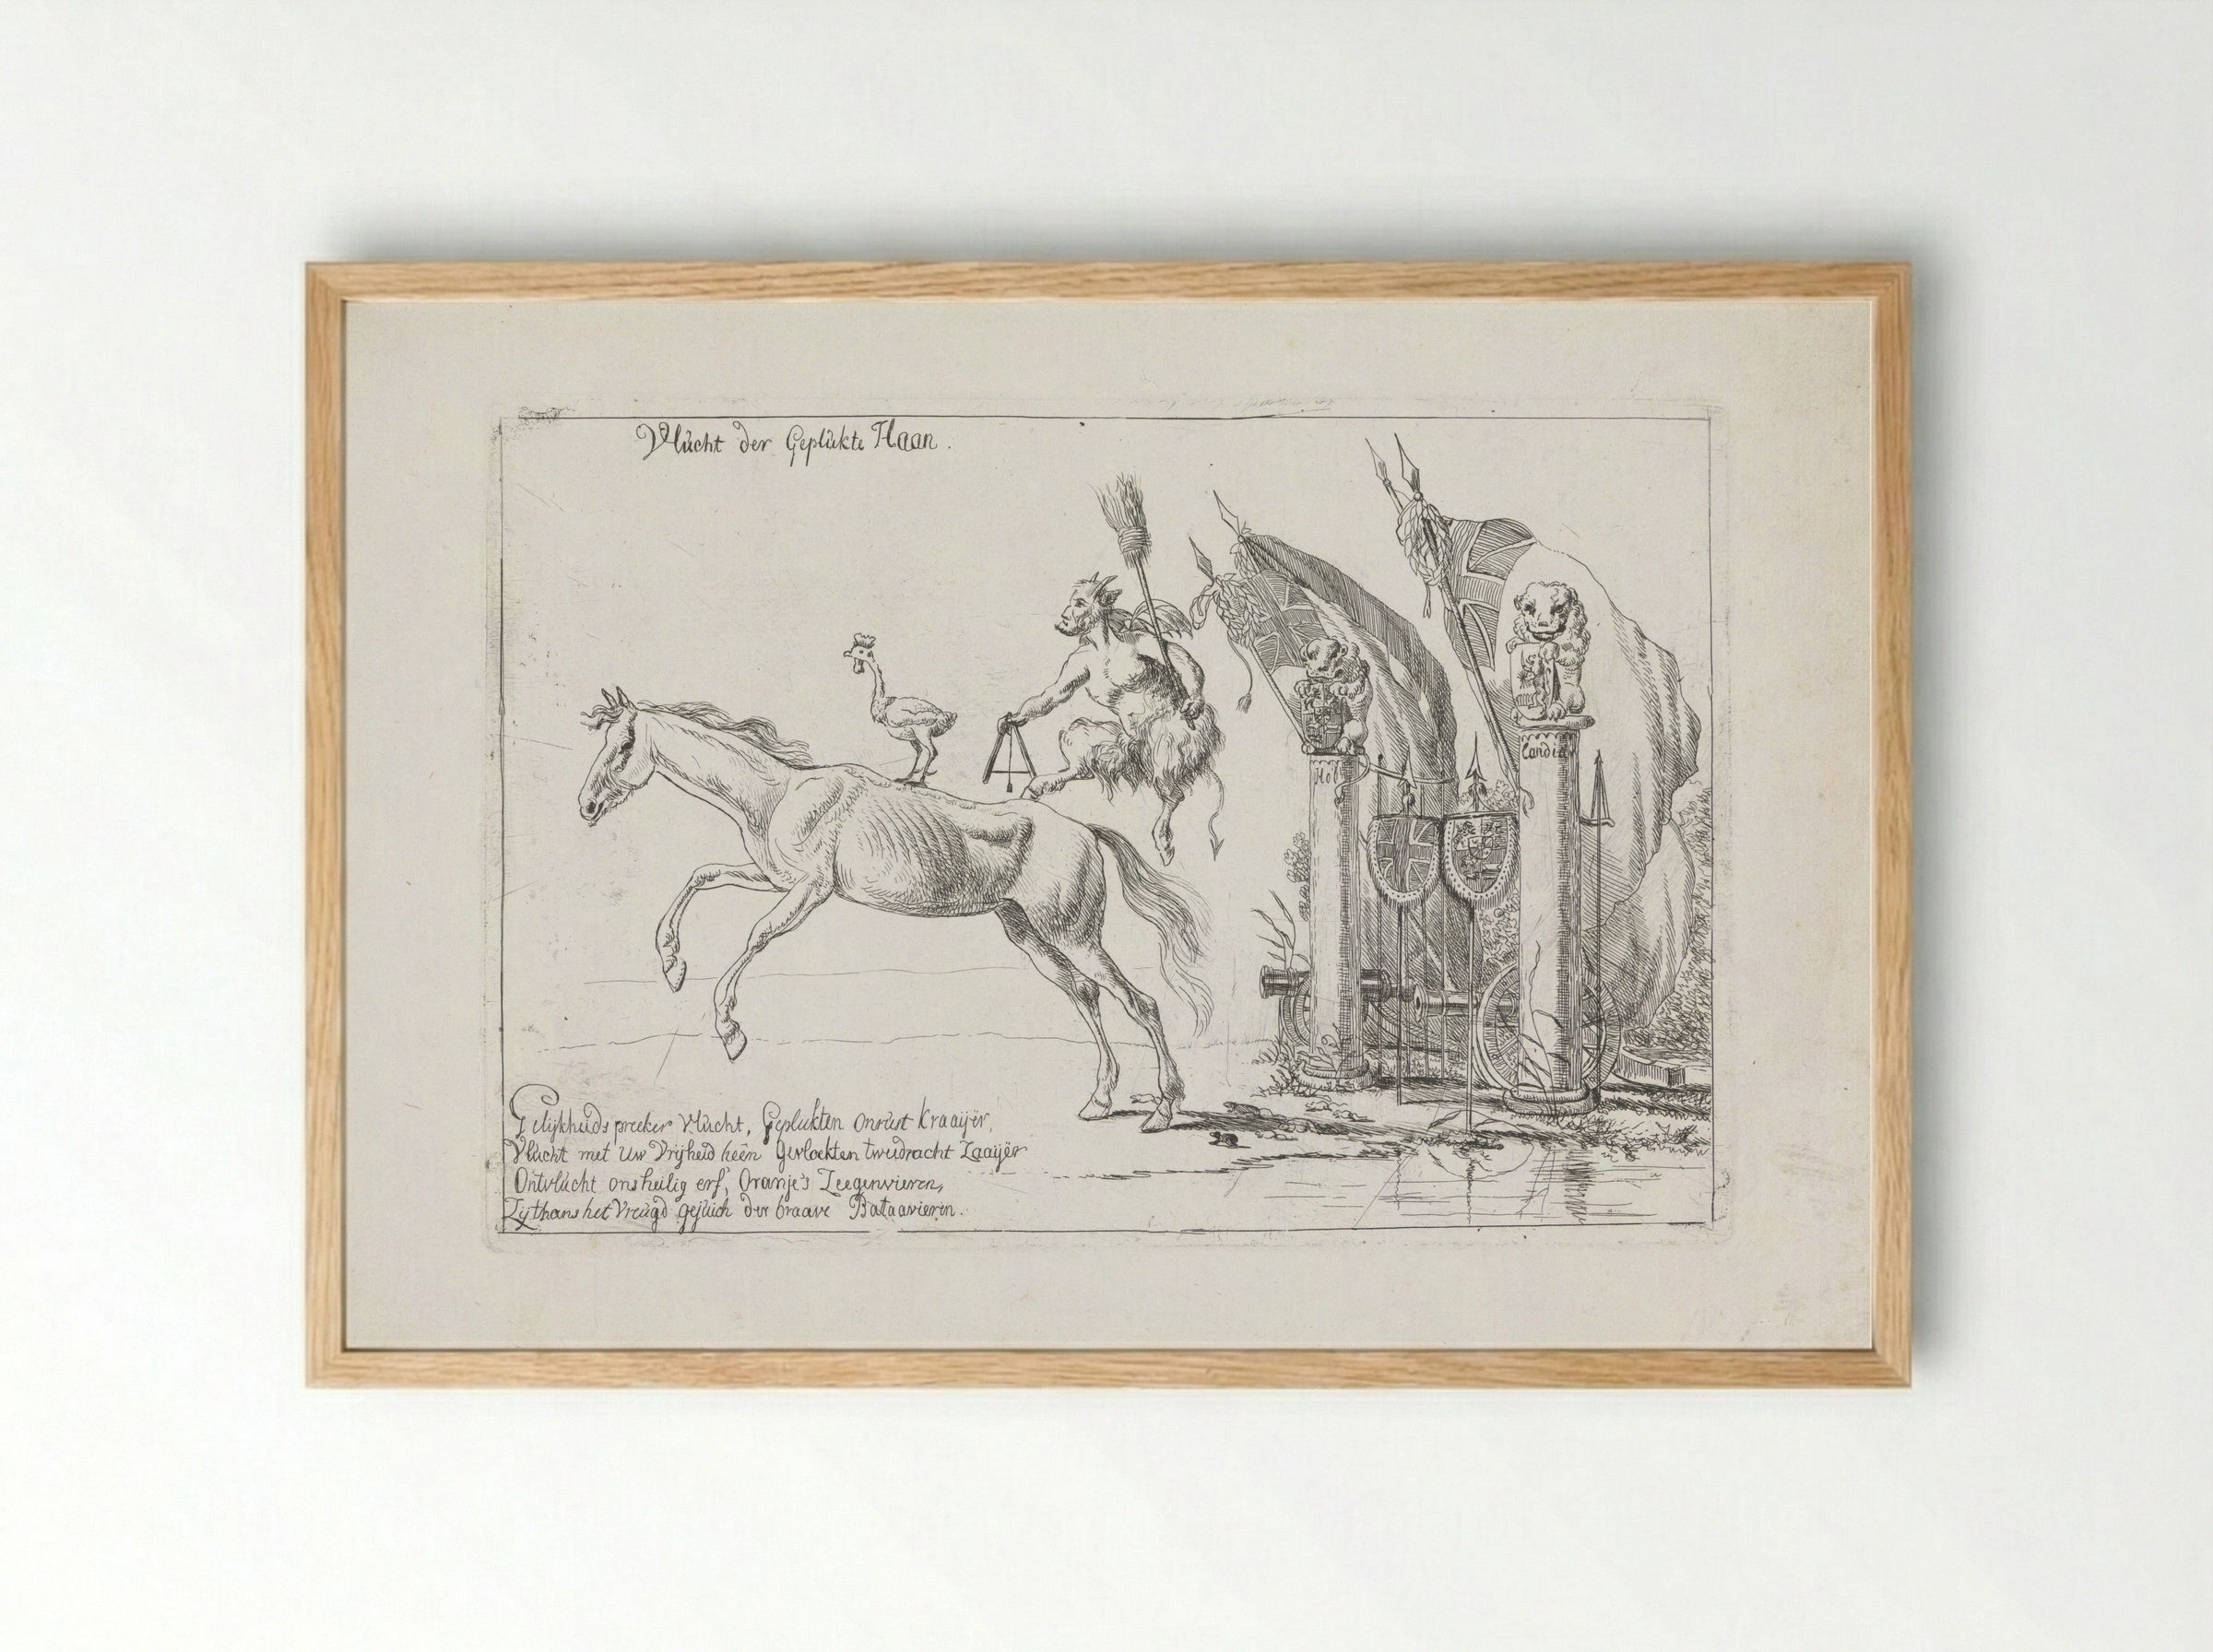 Vlucht der Geplukte Haan.
Hol
landia
Gelijkheids preeker vlucht, Geplukten onrust kraaijër,
Vlucht met Uw Vrijheid heên Gevloekten tweedracht Zaaijër
Ontvlucht ons heilig erf, Oranje's Zeegenvieren,
Zij thans het Vreugd gejuich der braave Bataavieren.